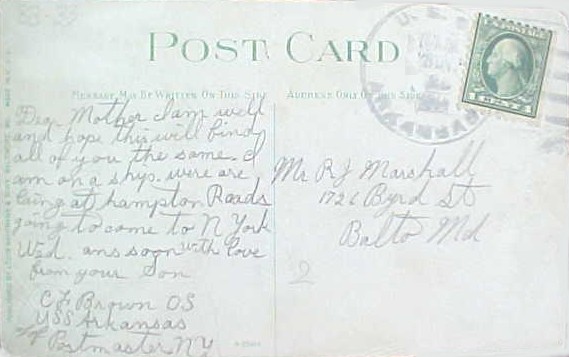 POST CARD
MESSAGE MAY BE WRITTEN ON THIS SIDE
ADDRESS ONLY ON THIS SIDE
Dear Mother I am well
and hope this will find
all of you the same. I
am on a ship. were are
laing at hampton Roads
going to come to N York
Wed. ans soon with love
from your Son
C F Brown OS
USS Arkansas
Postmaster NY
Mr R J Marshall
1726 Byrd St
Balto Md
2
U. S.
ARKANSAS